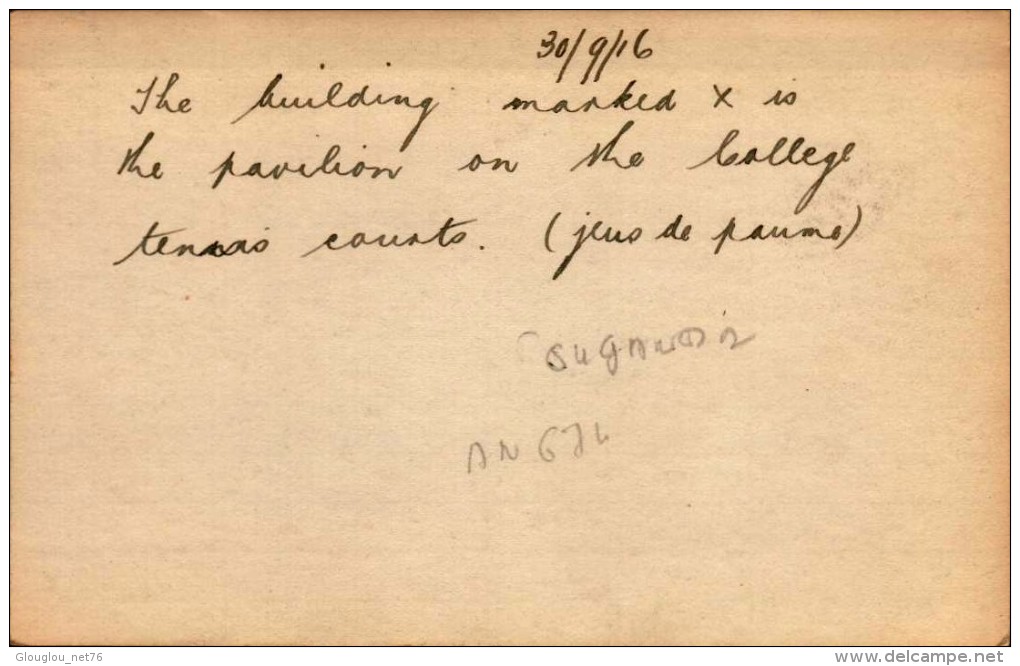 30/9/16
The building marked x is
the pavilion on the College
tennis courts. (jeus de paume)
Glouglou_net76
delcampe.net